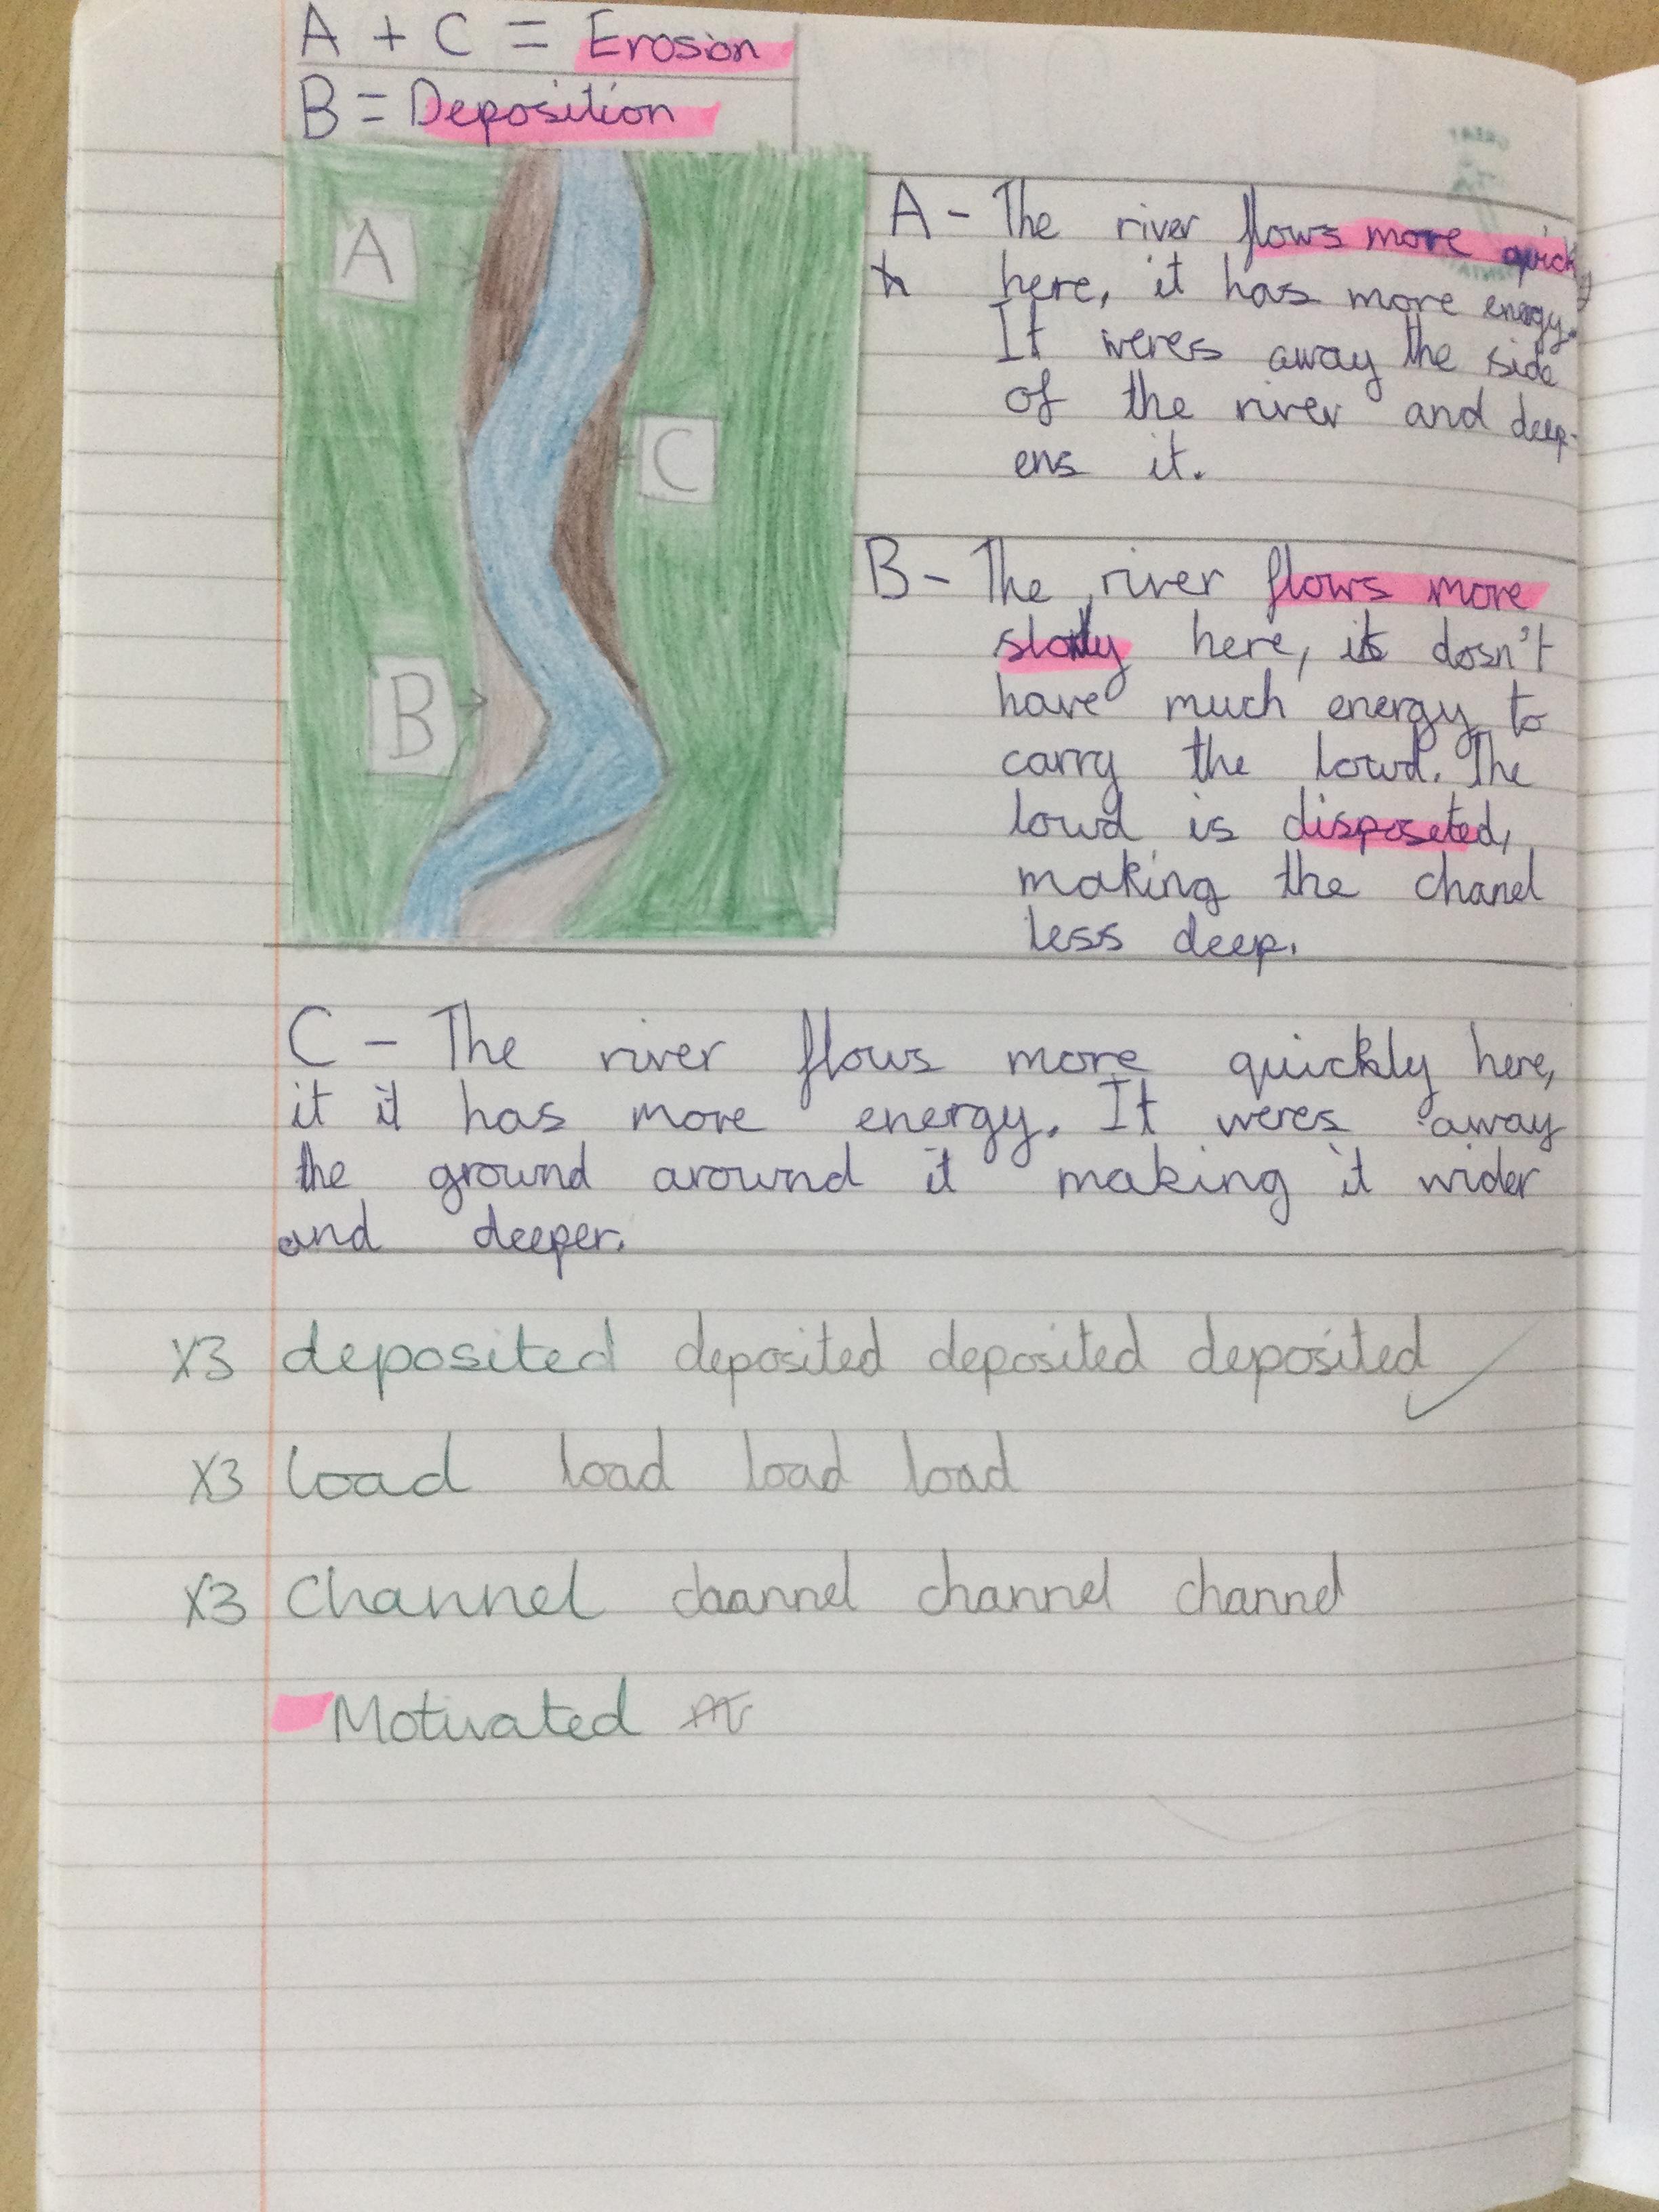 A + C = Erosion
B = Deposition
A
C
B
A - The river flows more quickly
here, it has more energy.
It weres away the side
of the river and deep-
ens it.
B - The river flows more
slowly here, it dosn't
have much energy to
carry the lowd. The
lowd is disposeted,
making the chanel
less deep.
C - The river flows more quickly here,
it it has more energy. It weres away
the ground around it making it wider
and deeper.
X3 deposited deposited deposited deposited
X3 load load load load
X3 Channel channel channel channel
Motivated